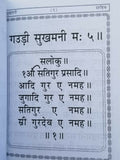 गउड़ी सुखमनी म: ५॥
सलोकु॥
१ओं सतिगुर प्रसादि॥
आदि गुर ए नमह॥
जुगादि गुर ए नमह॥
सतिगुर ए नमह॥
श्री गुरदेव ए नमह॥
॥१॥